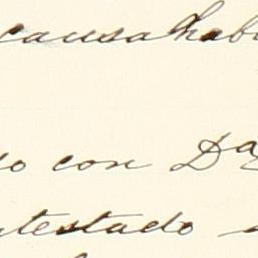 causa hab
do con Da
ntestado